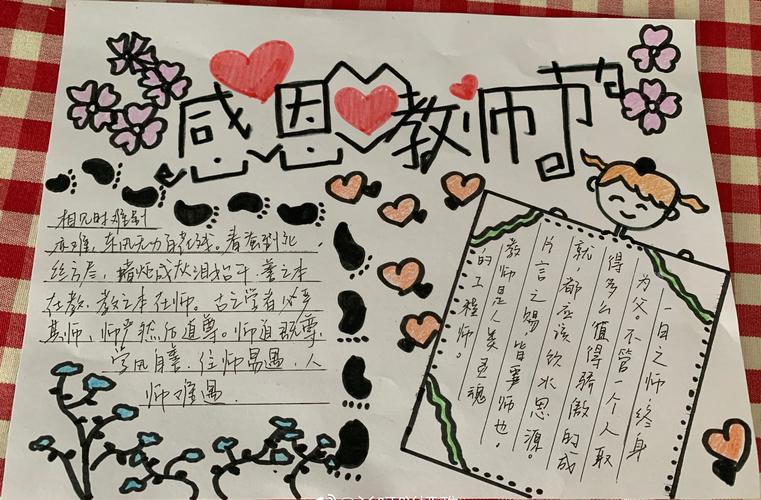 感恩教师节
相见时难别
亦难，东风无力百花残。春蚕到死
丝方尽，蜡炬成灰泪始干。善之本
在教，教之本在师。古之学者必严
其师，师严然后道尊。师道既尊，
学风自善，位师易遇，人
师难遇.
一日之师，终身
为父。不管一个人取
得多么值得骄傲的成
就，都应该饮水思源。
片言之赐，皆事师也。
教师是人类灵魂
的工程师。